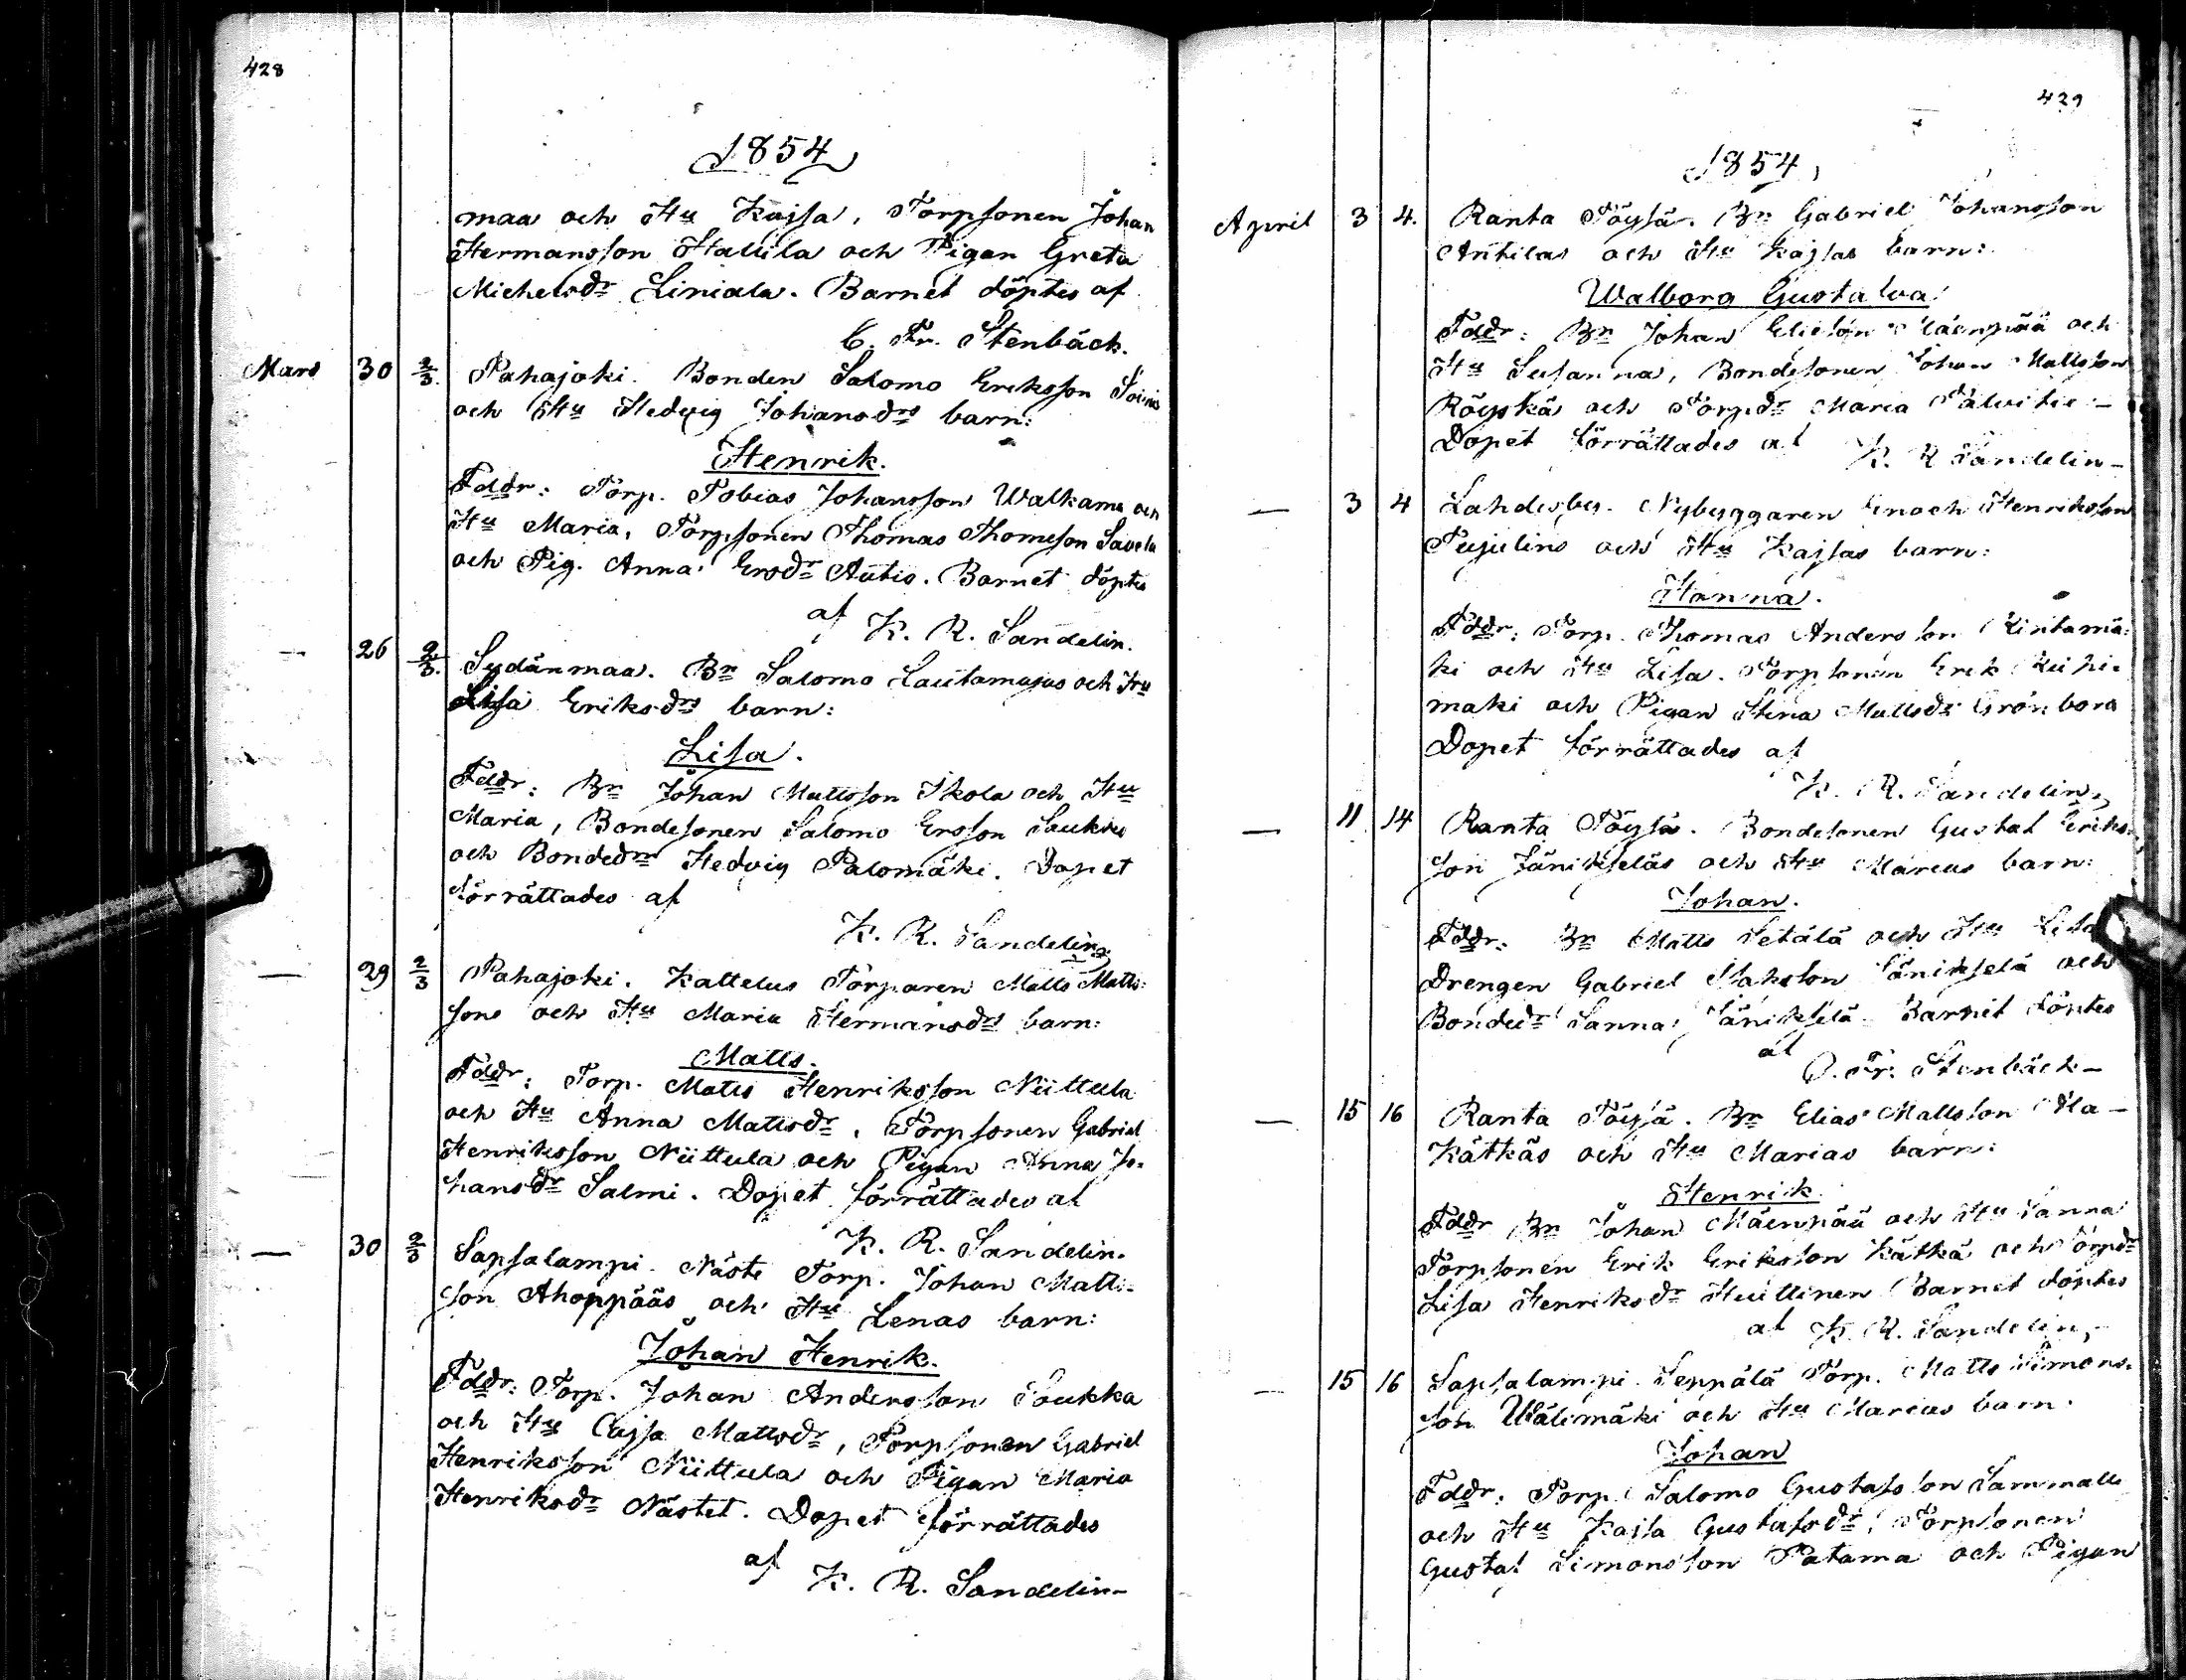 428
1854
maa och Hu Kajsa, Torpsonen Johan
Hermansson Hallila och Pigan Greta
Michelsdr Liniala. Barnet döptes af
C. Fr. Stenbäck.
Mars 30 2/3. Pahajoki. Bonden Salomo Eriksson Soinis
och Hu Hedvig Johansdrs barn:
Henrik.
Fddr: Torp. Tobias Johansson Walkama och
Hu Maria, Torpsonen Thomas Thomeson Savela
och Pig. Anna Ersdr Autio. Barnet döptes
af K. R. Sandelin.
— 26 2/3. Sydänmaa. Bn Salomo Lautamajas och Hu
Lisa Eriksdrs barn:
Lisa.
Fddr: Bn Johan Mattsson Skola och Hu
Maria, Bondesonen Salomo Ersson Saukko
och Bondedr Hedvig Palomäki. Dopet
förrättades af
K. R. Sandelin
— 29 2/3 Pahajoki. Kattelus Torparen Matts Matts-
sons och Hu Maria Hermansdrs barn:
Matts.
Fddr: Torp. Matts Henriksson Niittula
och Hu Anna Mattsdr, Torpsonen Gabriel
Henriksson Niittula och Pigan Anna Jo-
hansdr Salmi. Dopet förrättades af
K. R. Sandelin.
— 30 2/3 Sapsalampi. Näste Torp. Johan Matts-
son Ahoppääs och Hu Lenas barn:
Johan Henrik.
Fddr: Torp. Johan Andersson Soukka
och Hu Cajsa Mattsdr, Torpsonen Gabriel
Henriksson Niittula och Pigan Maria
Henriksdr Nästet. Dopet förrättades
af K. R. Sandelin-
429
1854
April 3 4. Ranta Töysä. Bn Gabriel Johansson
Anttilas och Hu Kajsas barn:
Walborg Gustafva
Fddr: Bn Johan Elieson Mäenpää och
Hu Susanna, Bondesonen Johan Mattsson
Röyskä och Torpdr Maria Palvitie -
Dopet förrättades af K. R Sandelin-
— 3 4 Lahdesby. Nybyggaren Enoch Henriksson
Pujulins och Hu Kajsas barn:
Hanna.
Fddr: Torp. Thomas Andersson Rintamä-
ki och Hu Lisa. Torpsonen Erik
maki och Pigan Stina Mattsdr Grönborg
Dopet förrättades af
K. R. Sandelin,
— 11 14 Ranta Töysä. Bondesonen Gustaf Eriks-
son Jänikseläs och Hu Marias barn:
Johan.
Fddr: Bn Matts Setälä och Hu Lisa
Drengen Gabriel Isaksson Jäniksela och
Bondedr Sanna Jäniksela Barnet döptes
af C. Fr. Stenbäck-
— 15 16 Ranta Töysä. Bn Elias Mattsson Ala-
Kätkäs och Hu Marias barn:
Henrik
Fddr Bn Johan Mäenpää och Hu Sanna
Torpsonen Erik Eriksson Kätkä och Torpdr
Lisa Henriksdr Huttinen Barnet döptes
af K. R. Sandelin,-
— 15 16 Sapsalampi. Seppälä Torp. Matts Simons-
son Wälimäki och Hu Marias barn:
Johan
Fddr: Torp. Salomo Gustafsson Sammalls
och Hu Kajsa Gustafsdr, Torpsonen
Gustaf Simonsson Patama och Pigan